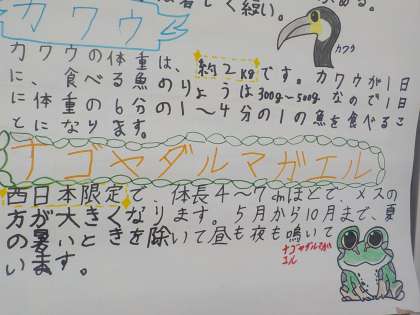 カワウ
カワウ
カワウの体重は、約2kgです。カワウが1日
に、食べる魚のりょうは300g〜500gなので1日
に体重の6分の1〜4分の1の魚を食べるこ
とになります。
ナゴヤダルマガエル
西日本限定で、体長4〜7cmほどで、メスの
方が大きくなります。5月から10月まで、夏
の暑いときを除いて昼も夜も鳴いて
います。
ナゴヤダルマガ
エル